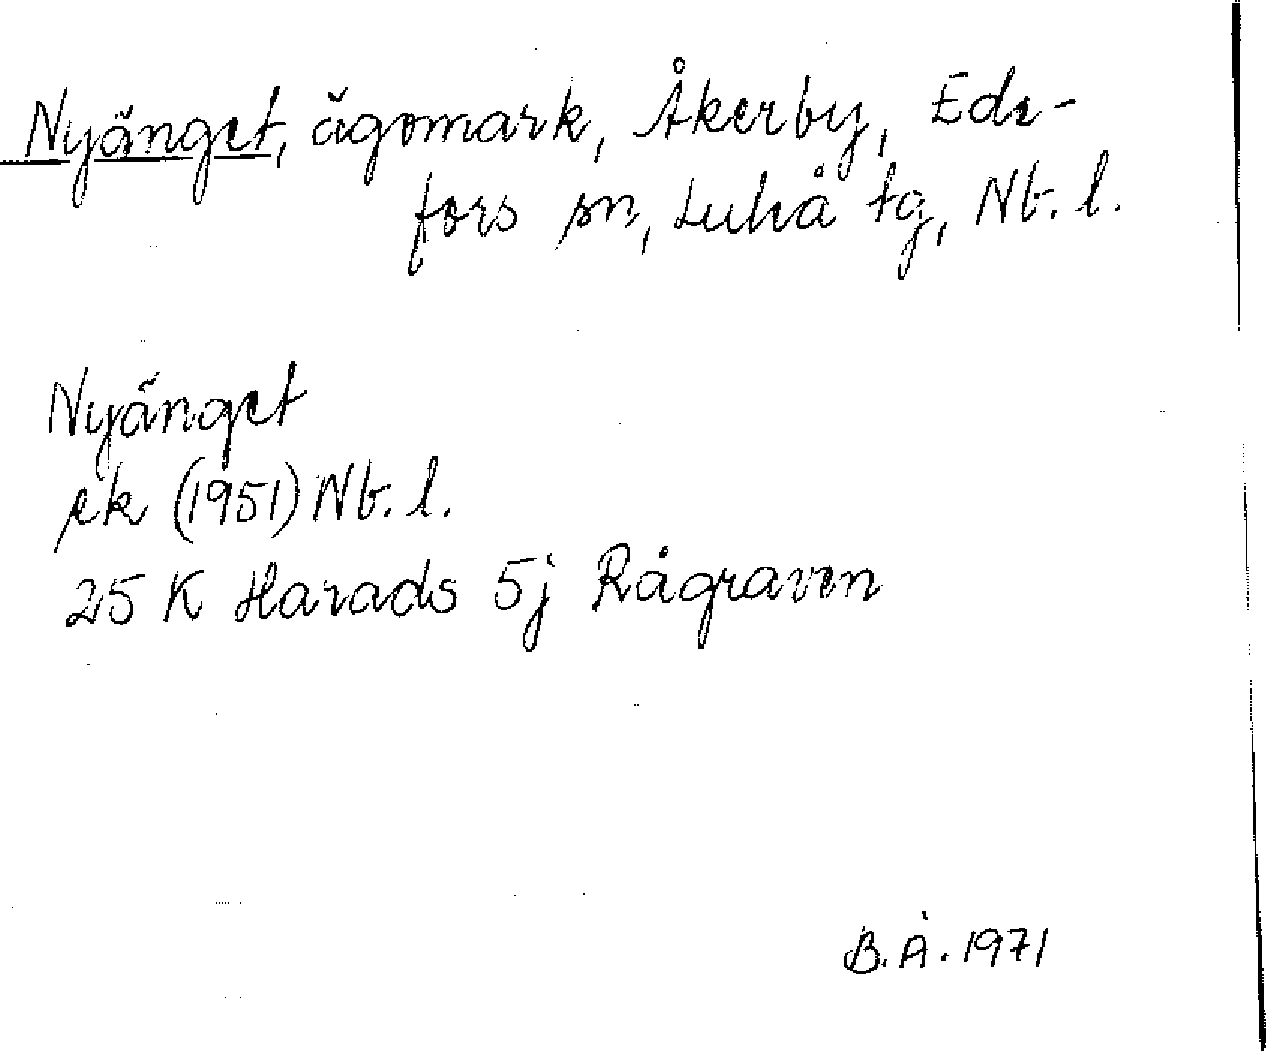 Nyänget, ägomark, Åkerby, Ede-
fors sn, Luhå tg, Nb. l.
Nyänget
ek (1951) Nb. l.
25 K Harads 5j Rågraven
B. Å. 1971